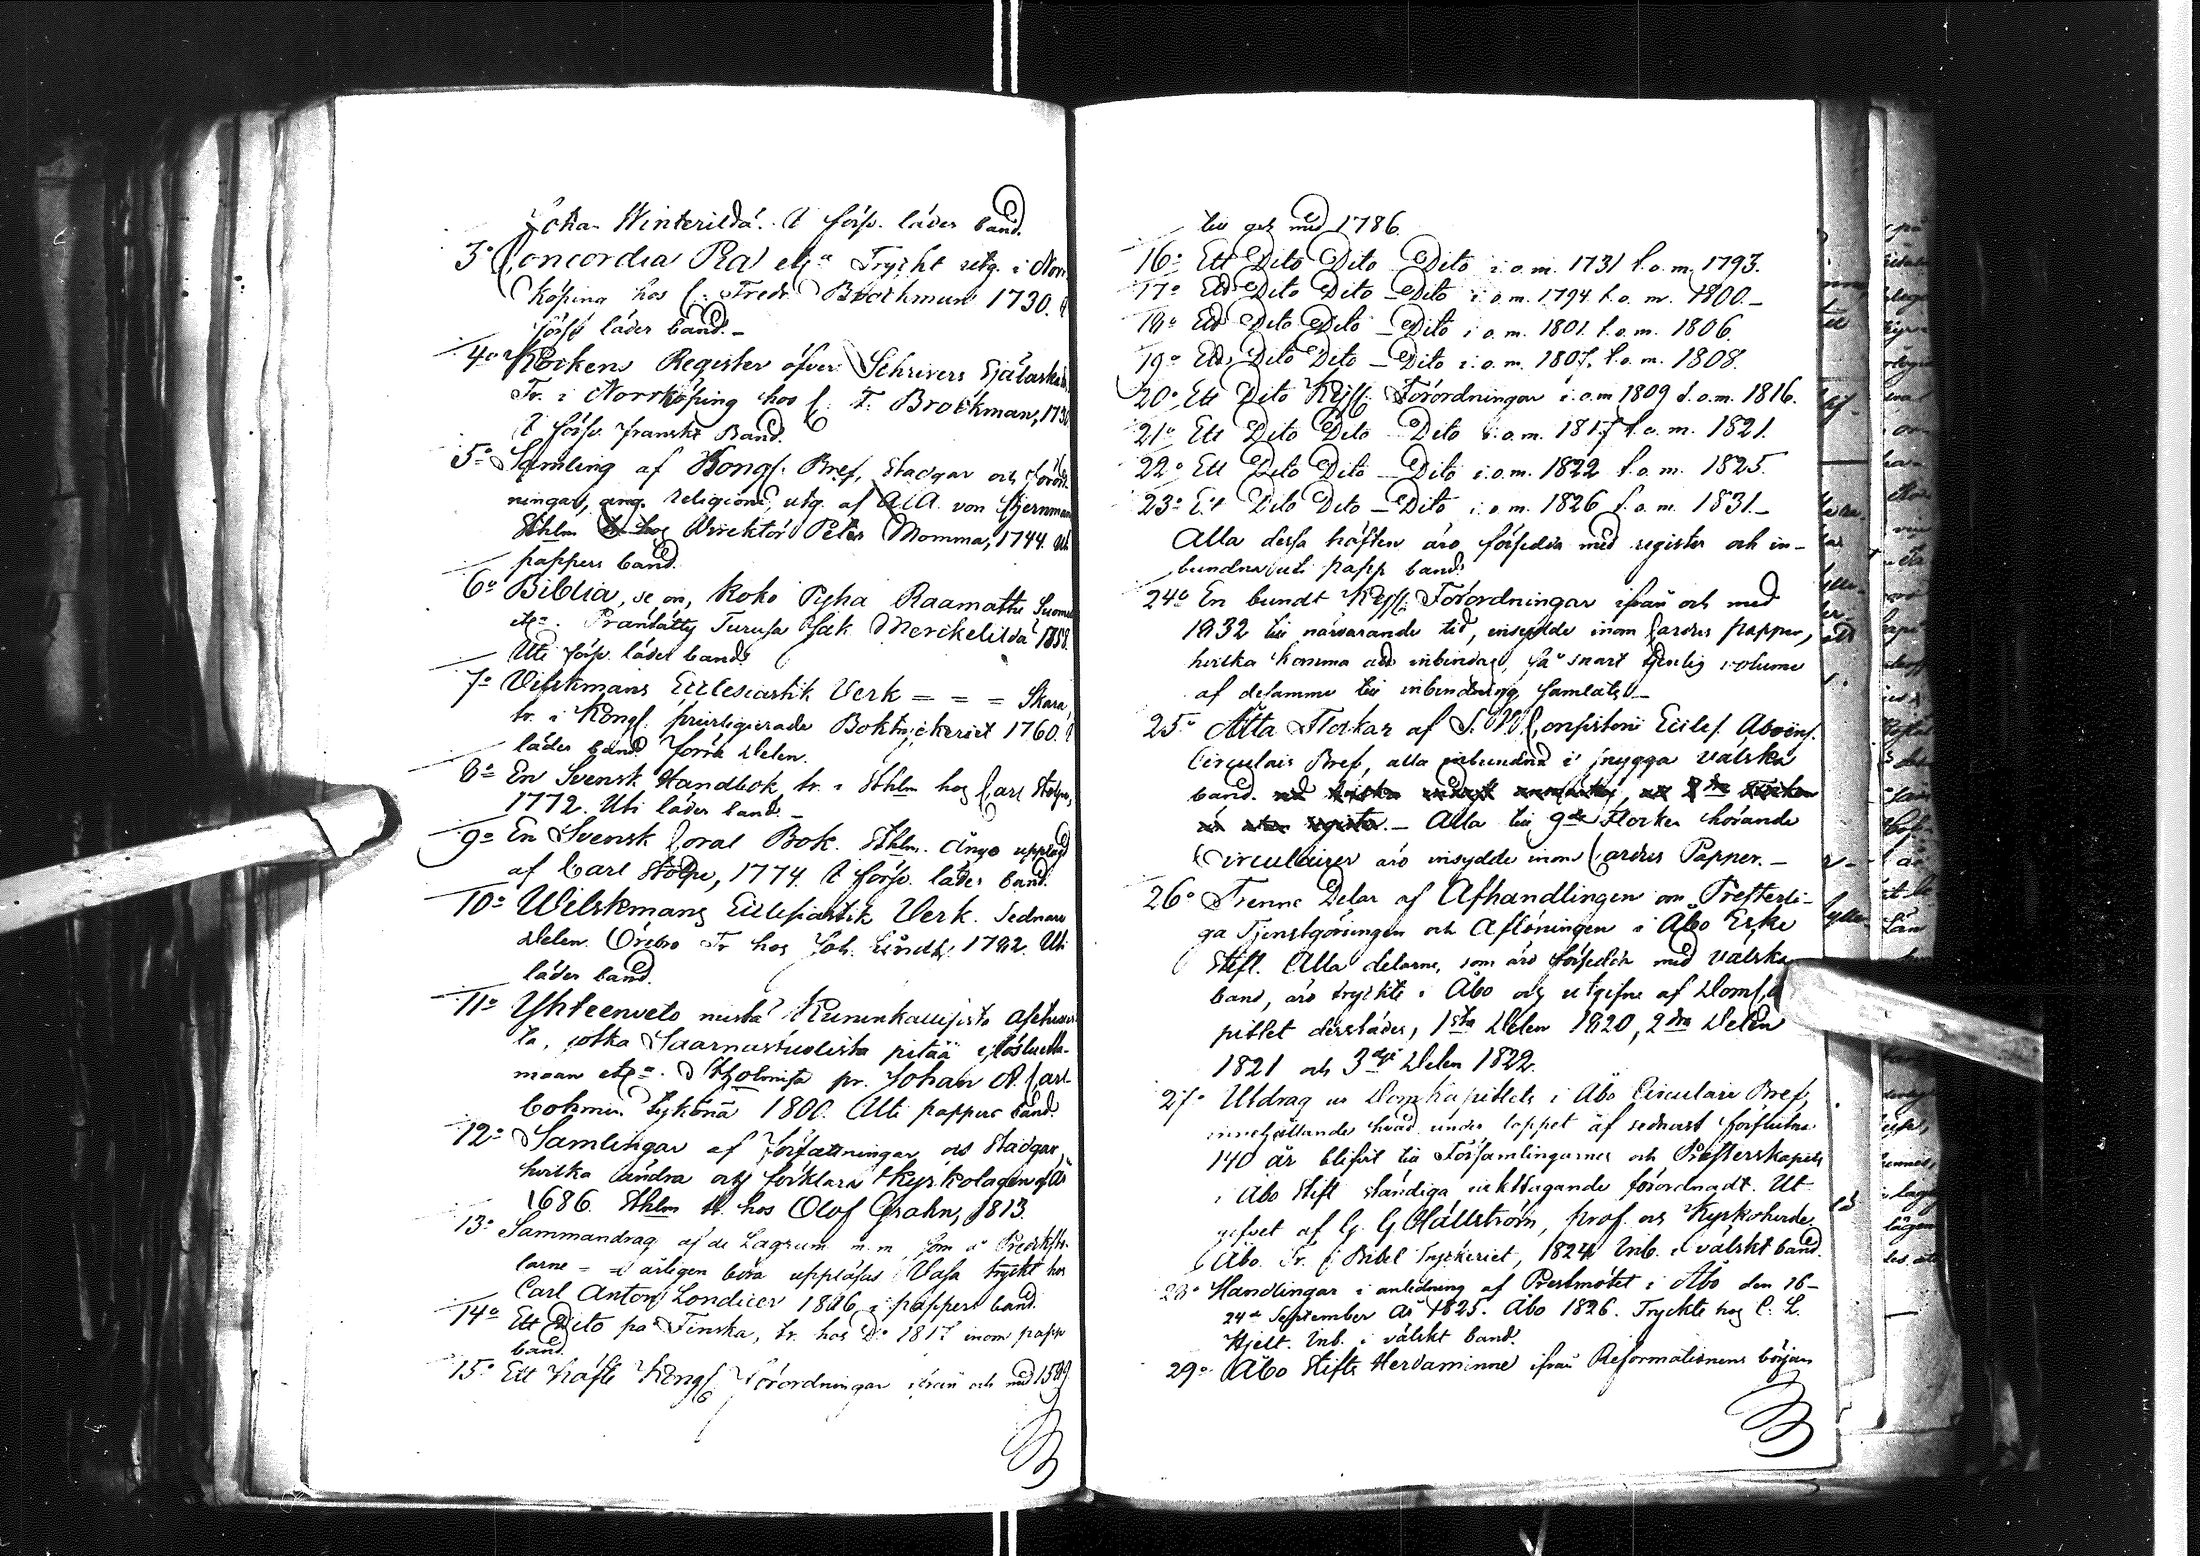 Joha. Winterildä. I förs. läder band.
3o Concordia Pia etc. Tryckt utg. i Norr
köping hos C. Fredr. Brockman 1730. I
förs. läder band. –
4o Kockens Register öfver Schrivers Själaskatt,
Tr. i Norrköping hos C. F. Brockman, 173
I förs. franskt Band.
5o Samling af Kongl. Bref, Stadgar och Förord
ningar, ang. religionen, utg. af A. A. von Stjernman
Sthlm Direktör Peter Momma, 1744. uti
pappers band.
6o Biblia, se on, Koko Pyhä Raamattu Suomex
etc. Präntätty Turusa Isak Merckelildä 1758.
Uti förs. läder band.
7o Vilskmans Ecclesiastik Verk = = = Skara,
tr. i Kongl. privilegierade Boktryckeriet 1760. I
läder band förra Delen.
8o En Svensk Handbok, tr. i Sthlm hos Carl Stolpe,
1772. Uti läder band. –
9o En Svensk Coral Bok. Sthlm. Ånyo upplagd
af Carl Stolpe, 1774. I förs. läder band.
10o Wilskmans Ecclesiastik Verk. Sednare
Delen. Örebro Tr. hos Joh. Lindh, 1782. Uti
läder band.
11o Yhteenveto niistä Kuninkallisista Asetuxis
ta, jotka Saarnastuolista pitää ylösluetta-
maan etc. Stokholmisa pr. Johan A. Carl
bohmin tykönä 1800. Uti pappers band.
12o Samlingar af Författningar och Stadgar,
hvilka ändra och förklara Kyrkolagen af År
1686. Sthlm tr. hos Olof Grahn, 1813.
13o Sammandrag af de Lagrum m. m. som å Prediksto
larne = = årligen böra uppläsas. Vasa tryckt hos
Carl Anton Londicer 1816, i pappers band.
14o Ett Dito på Finska, tr. hos Do 1817 inom papp
band.
15o Ett häfte Kongl. Förordningar ifrån och med 15
till och med 1786.
16o Ett Dito Dito – Dito i. o. m. 1731 t. o. m. 1793.
17o Ett Dito Dito – Dito i. o. m. 1794 t. o. m. 1800. –
18o Ett Dito Dito – Dito i. o. m. 1801. t. o. m. 1806.
19o Ett Dito Dito – Dito i. o. m. 1807. t. o. m. 1808.
20o Ett Dito Kejs. Förordningar i. o. m 1809 t. o. m. 1816.
21o Ett Dito Dito – Dito i. o. m. 1817 t. o. m. 1821.
22o Ett Dito Dito – Dito i. o. m. 1822 t. o. m. 1825.
23o Ett Dito Dito – Dito i. o. m. 1826 t. o. m. 1831. –
Alla dessa häften äro försedda med register och in-
bundna uti papp band.
24o En bundt Kejs. Förordningar ifrån och med
1832 till närvarande tid, insydde inom Cardus papper,
hvilka komma att inbindas, så snart tjenlig volume
af desamma till inbindning samlats. –
25o Åtta Flockar af S. V. Consistorii Eccles. Aboëns.
Circulair Bref, alla inbundna i snygga välska
band.
– Alla till 9de Flocken hörande
Circulairer äro insydde inom Cardus Papper. –
26o Trenne Delar af Afhandlingen om Presterli-
ga Tjenstgöringen och Aflöningen i Åbo Erke
Stift. Alla delarne, som äro försedda med välska
band, äro tryckte i Åbo och utgifne af Domca
pitlet derstädes, 1sta Delen 1820, 2dra Delen
1821 och 3dje Delen 1822.
27o Utdrag ur Domkapitlets i Åbo Circulair Bref,
innehållande hvad under loppet af sednast förflutna
140 år blifvit till Församlingarnes och Presterskapets
i Åbo Stift ständiga iakttagande förordnadt. Ut
gifvet af G. G. Hällström, prof. och Kyrkoherde.
Åbo. Tr. i Bibel Tryckeriet, 1824. Inb. i välskt band.
28o Handlingar i anledning af Prestmötet i Åbo den 16–
24de September år 1825. Åbo 1826. Tryckte hos C. L.
Hjelt. Inb. i välskt band.
29o Åbo Stifts Herdaminne ifrån Reformationens början